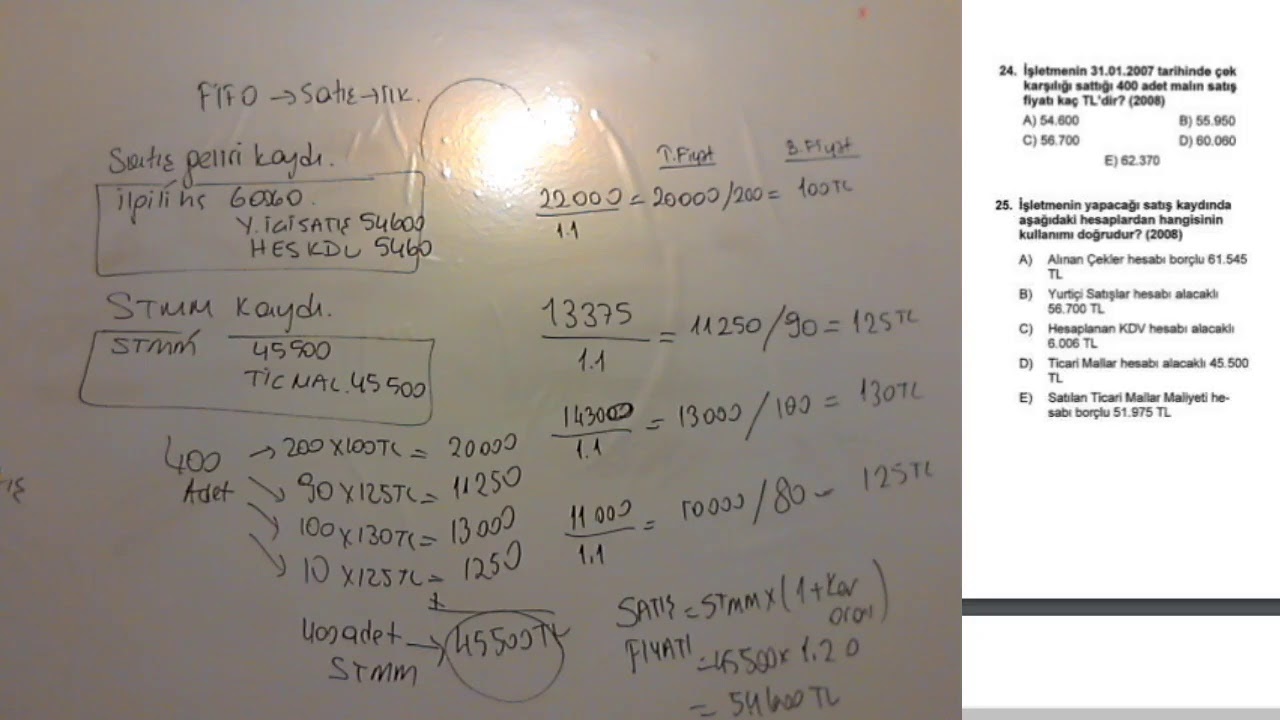 FİFO → Satış → TTK.
Satış geliri kaydı.
İlgili hs 60060.
Y. İÇİ SATIŞ 54600
HES KDV 5460
STMM Kaydı.
STMM 45500
TİC MAL. 45500
400 Adet
→ 200 x 100TL = 20000
90 x 125TL = 11250
100 x 130TL = 13000
10 x 125TL = 1250
+
400 adet → 45500TL
STMM
T. Fiyat B. Fiyat
22000 / 1.1 = 20000/200 = 100TL
13375 / 1.1 = 11250/90 = 125TL
143000 / 1.1 = 13000/100 = 130TL
11000 / 1.1 = 10000/80 = 125TL
SATIŞ FİYATI = STMM x (1 + Kar oranı)
= 45500 x 1.20
= 54600 TL
24. İşletmenin 31.01.2007 tarihinde çek
karşılığı sattığı 400 adet malın satış
fiyatı kaç TL'dir? (2008)
A) 54.600 B) 55.950
C) 56.700 D) 60.060
E) 62.370
25. İşletmenin yapacağı satış kaydında
aşağıdaki hesaplardan hangisinin
kullanımı doğrudur? (2008)
A) Alınan Çekler hesabı borçlu 61.545
TL
B) Yurtiçi Satışlar hesabı alacaklı
56.700 TL
C) Hesaplanan KDV hesabı alacaklı
6.006 TL
D) Ticari Mallar hesabı alacaklı 45.500
TL
E) Satılan Ticari Mallar Maliyeti he-
sabı borçlu 51.975 TL